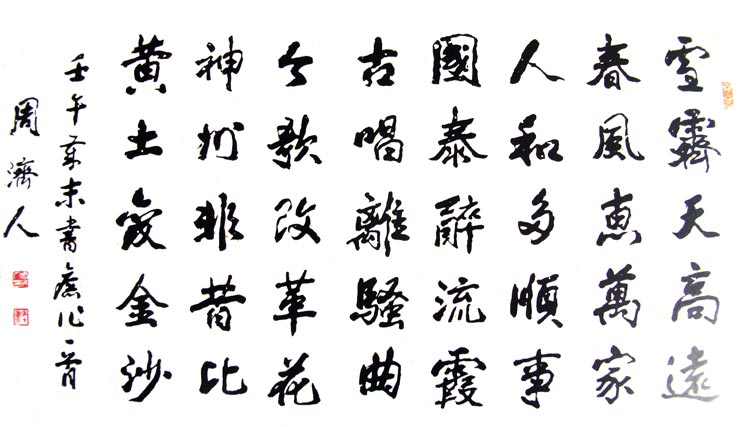 雪霽天高遠
春風惠萬家
人和多順事
國泰醉流霞
古唱離騷曲
今歌改革花
神州非昔比
黄土變金沙
壬午歲末書舊作一首
周濟人